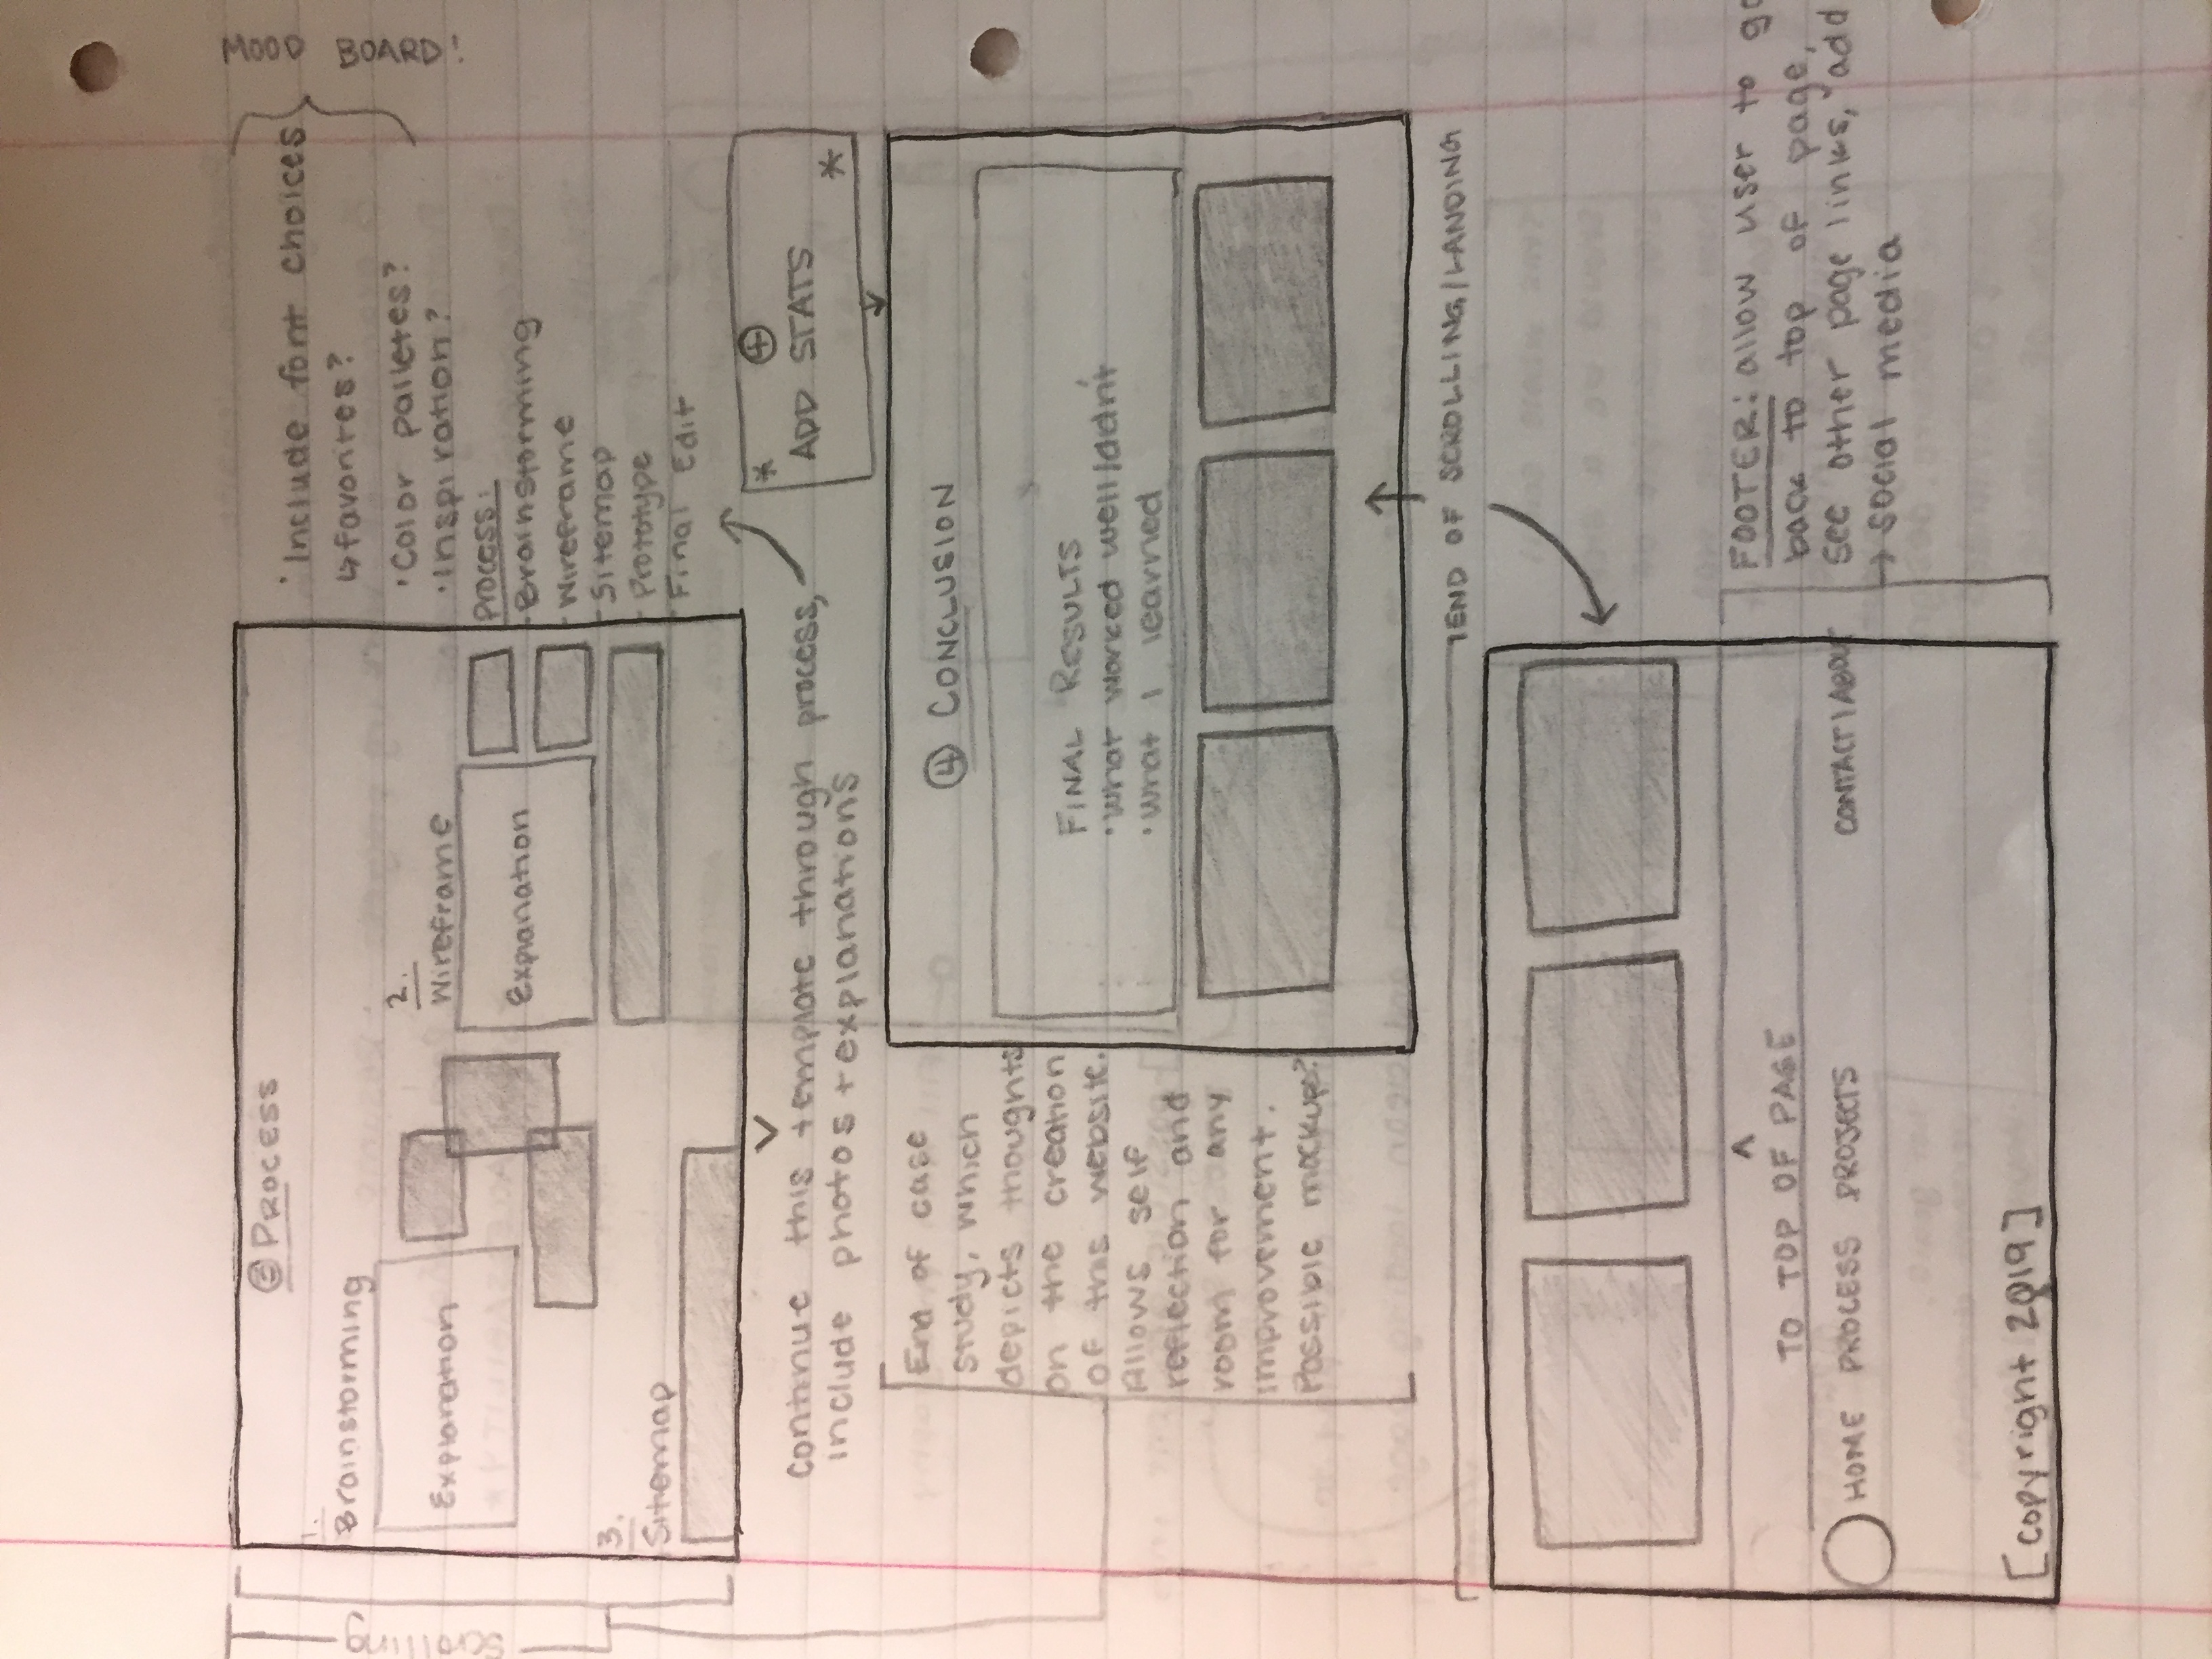 ③ PROCESS
1.
Brainstorming
Explanation
2.
Wireframe
Explanation
3.
Sitemap
Scrolling
• Include font choices
↳ favorites?
• Color palletes?
• Inspiration?
MOOD BOARD!
Process:
- Brainstorming
- Wireframe
- Sitemap
- Prototype
- Final Edit
Continue this template through process,
include photos + explanations
* +
ADD STATS
*
End of case
study, which
depicts thoughts
on the creation
of this website.
Allows self
reflection and
room for any
improvement.
Possible mockups?
④ CONCLUSION
FINAL RESULTS
• What worked well/didn't
• What I learned
END OF SCROLLING/LANDING
^
TO TOP OF PAGE
HOME PROCESS PROJECTS CONTACT | ABOUT
[copyright 2019]
FOOTER: allow user to go
back to top of page,
see other page links, add
→ social media